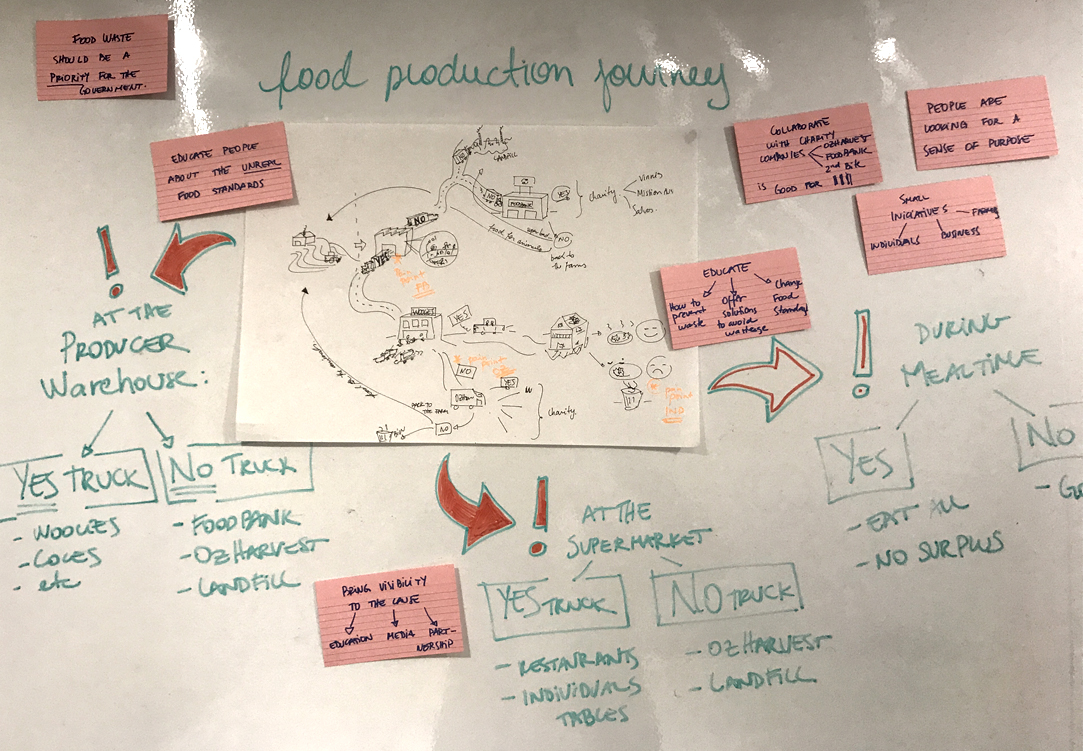 FOOD WASTE
SHOULD BE A
PRIORITY FOR THE
GOVERNMENT.
food production journey
EDUCATE PEOPLE
ABOUT THE UNREAL
FOOD STANDARDS
COLLABORATE
WITH CHARITY
COMPANIES
OZHARVEST
FOODBANK
2nd Bite
IS GOOD FOR
PEOPLE ARE
LOOKING FOR A
SENSE OF PURPOSE
SMALL
INICIATIVES
INDIVIDUALS
BUSINESS
EDUCATE
HOW TO
prevent
waste
Offer
solutions
to avoid
Change
Food
LANDFILL
NO
YES
charity
Vinnis
Salvos.
food for animals
NO
back to
the farms
NO
YES
YES
NO
YES
charity
BACK TO
THE FARM
NO
BIN
! AT THE
PRODUCER
WAREHOUSE:
YES TRUCK
- WOOLIES
- COLES
- etc
NO TRUCK
- FOODBANK
- OZHARVEST
- LANDFILL
! AT THE
SUPERMARKET
YES TRUCK
- RESTAURANTS
- INDIVIDUALS
TABLES
NO TRUCK
- OZHARVEST
- LANDFILL
BRING VISIBILITY
TO THE CAUSE
EDUCATION
MEDIA
PART-
NERSHIP
! DURING
MEALTIME
YES
- EAT ALL
- NO SURPLUS
NO